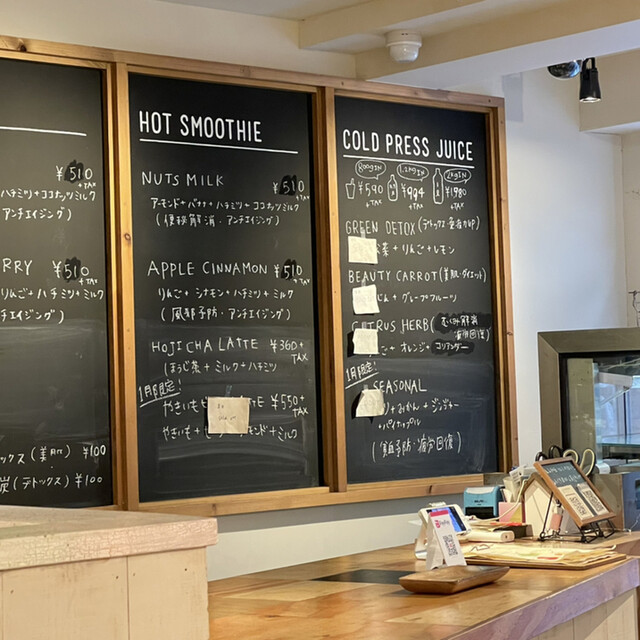 ¥510
+TAX
ハチミツ+ココナッツミルク
アンチエイジング)
RRY ¥510
+TAX
りんご+ハチミツ+ミルク
アンチエイジング)
ックス(美肌) ¥100
炭(デトックス) ¥100
HOT SMOOTHIE
NUTS MILK ¥510
+TAX
アーモンド+バナナ+ハチミツ+ココナッツミルク
(便秘解消・アンチエイジング)
APPLE CINNAMON ¥510
+TAX
りんご+シナモン+ハチミツ+ミルク
(風邪予防・アンチエイジング)
HOJICHA LATTE ¥360+
TAX
(ほうじ茶+ミルク+ハチミツ)
1月限定!
やきいも TE ¥550+
TAX
やきいも+ モンド+ミルク
COLD PRESS JUICE
¥590
+TAX
¥994
+TAX
¥1980
+TAX
GREEN DETOX
菜+りんご+レモン
BEAUTY CARROT(美肌・ダイエット)
じん+グレープフルーツ
CITRUS HERB(むくみ解消
疲労回復)
ご+オレンジ+コリアンダー
1月限定!
SEASONAL
+みかん+ジンジャー
+パイナップル
(風邪予防・疲労回復)